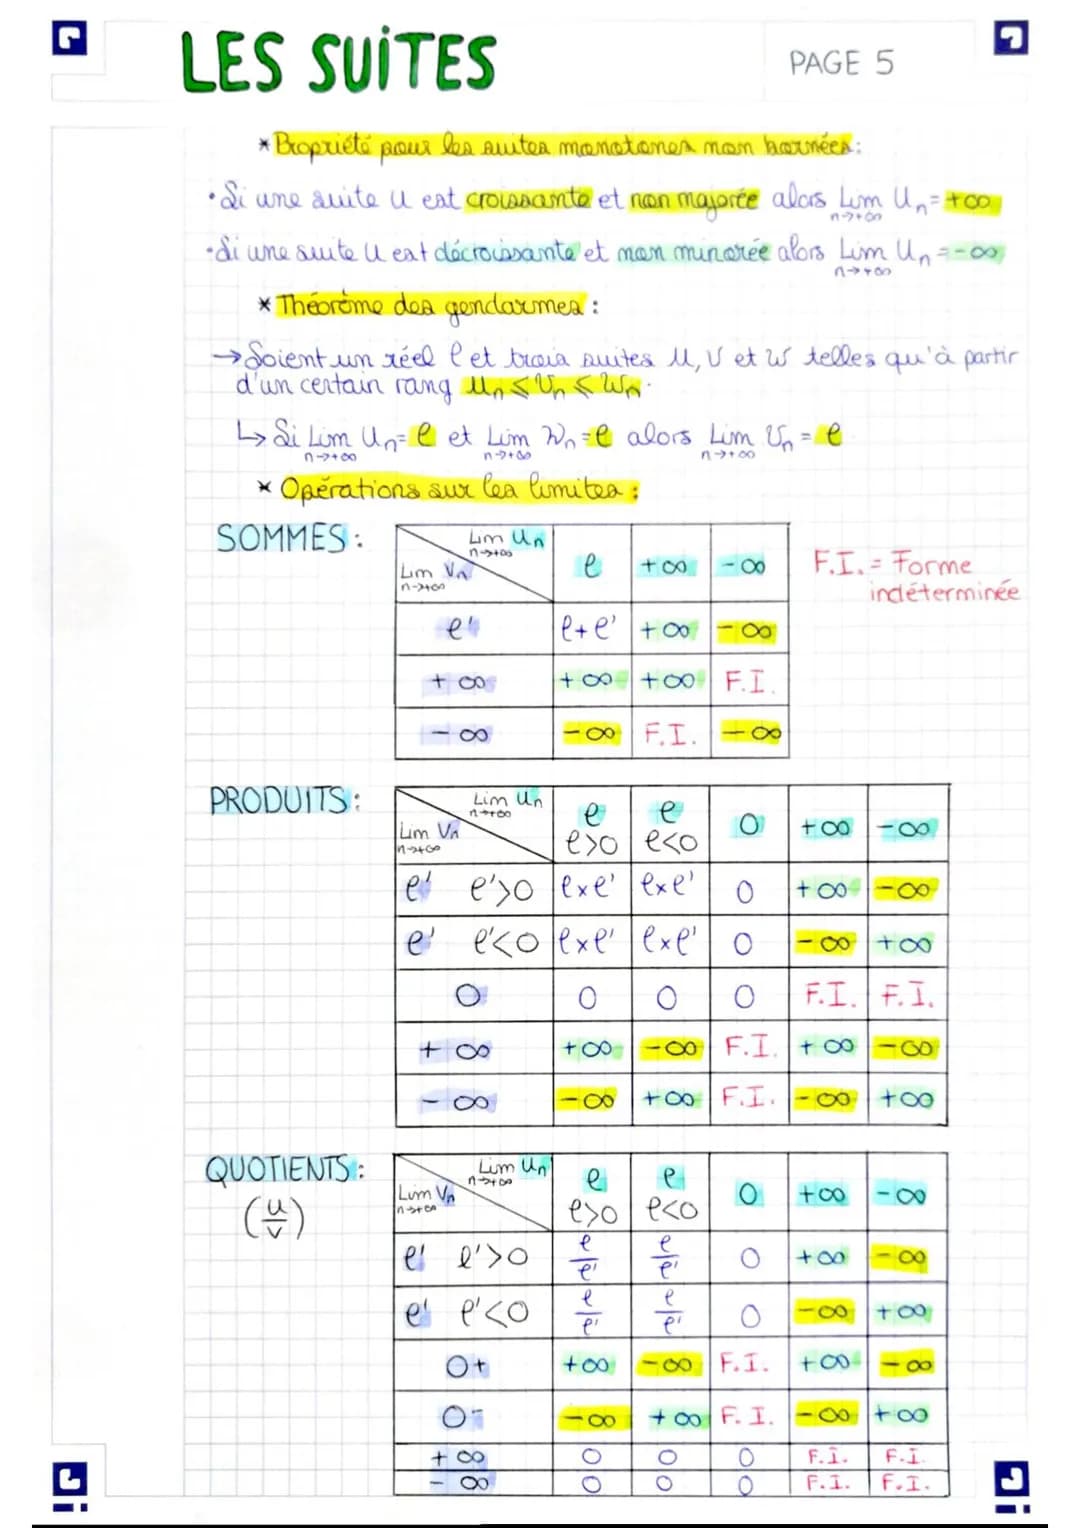 LES SUITES
PAGE 5
* Propriété pour les suites monotones non bornées :
• Si une suite U est croissante et non majorée alors Lim Un = +∞
n→+∞
• Si une suite U est décroissante et non minorée alors Lim Un = -∞
n→+∞
* Théorème des gendarmes :
→ Soient un réel l et trois suites U, V et W telles qu'à partir
d'un certain rang Un ⩽ Vn ⩽ Wn.
↳ Si Lim Un = l et Lim Wn = l alors Lim Vn = l
n→+∞ n→+∞ n→+∞
* Opérations sur les limites :
SOMMES :
Lim Un
n→+∞
Lim Vn
n→+∞
l +∞ -∞
F.I. = Forme
indéterminée
l' l+l' +∞ -∞
+∞ +∞ +∞ F.I.
-∞ -∞ F.I. -∞
PRODUITS :
Lim Un
n→+∞
Lim Vn
n→+∞
l l 0 +∞ -∞
l>0 l<0
l' l'>0 l×l' l×l' 0 +∞ -∞
l' l'<0 l×l' l×l' 0 -∞ +∞
0 0 0 0 F.I. F.I.
+∞ +∞ -∞ F.I. +∞ -∞
-∞ -∞ +∞ F.I. -∞ +∞
QUOTIENTS :
(u/v)
Lim Un
n→+∞
Lim Vn
n→+∞
l l 0 +∞ -∞
l>0 l<0
l' l'>0 l/l' l/l' 0 +∞ -∞
l' l'<0 l/l' l/l' 0 -∞ +∞
0+ +∞ -∞ F.I. +∞ -∞
0- -∞ +∞ F.I. -∞ +∞
+∞ 0 0 0 F.I. F.I.
-∞ 0 0 0 F.I. F.I.